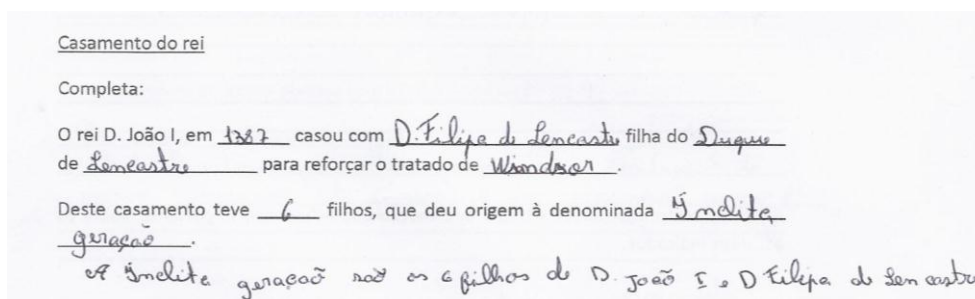 Casamento do rei
Completa:
O rei D. João I, em 1387 casou com D. Filipa de Lencastre filha do Duque
de Lencastre para reforçar o tratado de Windsor.
Deste casamento teve 6 filhos, que deu origem à denominada Ínclita
geração.
A Ínclita geração são os 6 filhos de D. João I e D Filipa de Lencastre